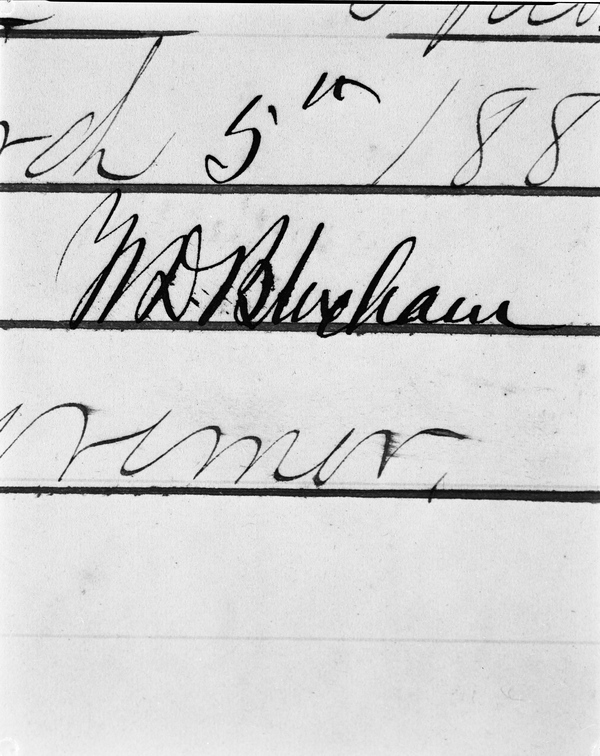 rch 5th 188
W D Bloxham
vernor,